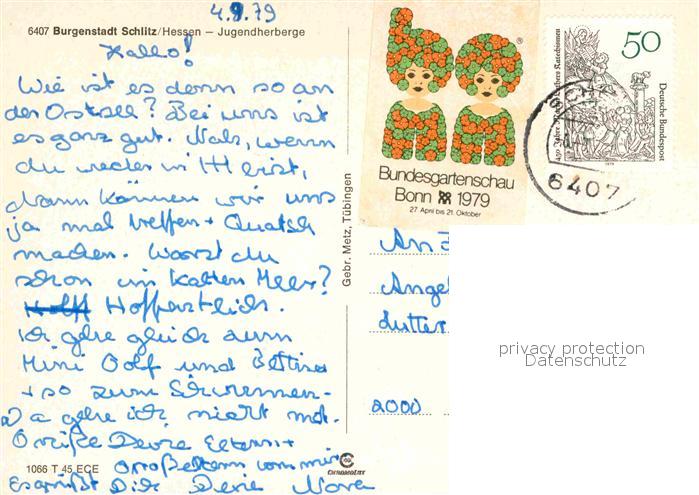 4.8.79
6407 Burgenstadt Schlitz/Hessen – Jugendherberge
Hallo!
Wie ist es denn so an
der Ostsee? Bei uns ist
es ganz gut. Nah, wenn
du wieder in HH bist,
dann können wir uns
ja mal treffen + Quatsch
machen. Warst du
schon im kalten Meer?
Hoffentlich.
Ich gehe gleich zum
Mini Golf und Bettina
+ so zum Schwimmen.
Da gehe ich nicht mit.
Grüße Deine Eltern +
Großeltern von mir
Es grüßt Dich Deine Nora
1066 T 45 ECE
CHROMOLUX
Gebr. Metz, Tübingen
Bundesgartenschau
Bonn 1979
27. April bis 21. Oktober
50
Deutsche Bundespost
6407
An
Angel
Lutter
2000
privacy protection
Datenschutz